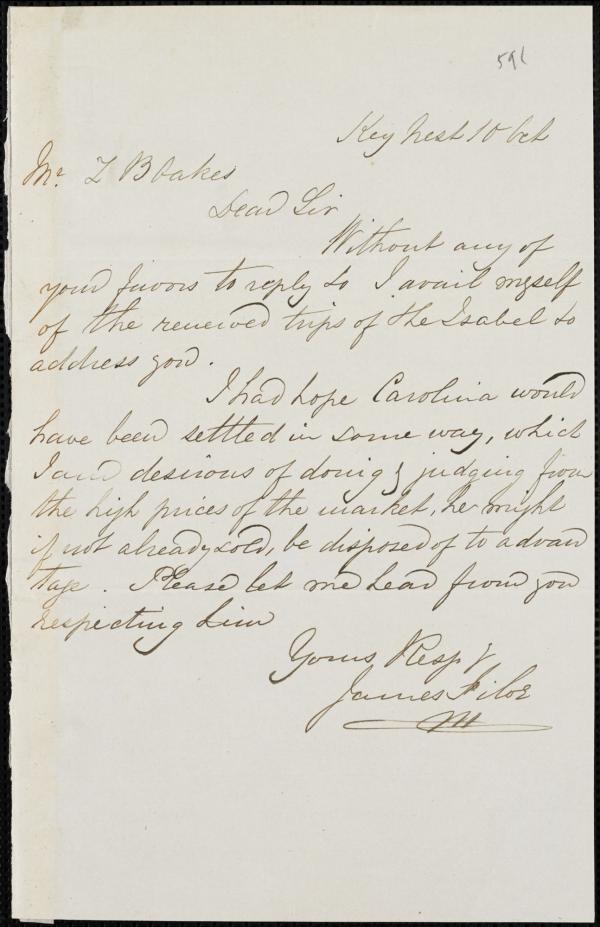 591
Key West 10 Oct
Mr. Z B Oakes
Dear Sir
Without any of
your favors to reply to I avail myself
of the renewed trips of the Isabel to
address you.
I had hope Carolina would
have been settled in some way, which
I am desirous of doing & judging from
the high prices of the market, he might
if not already sold, be disposed of to advan
tage. Please let me hear from you
respecting him
Yours Respy
James Filor